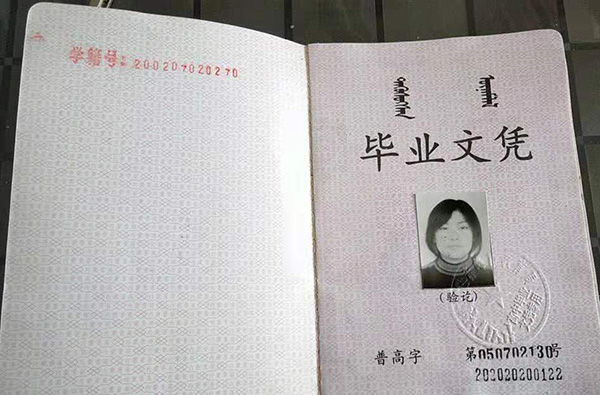 学籍号: 200207020270
毕业文凭
(验讫)
普高字 第050702130号
202020200122